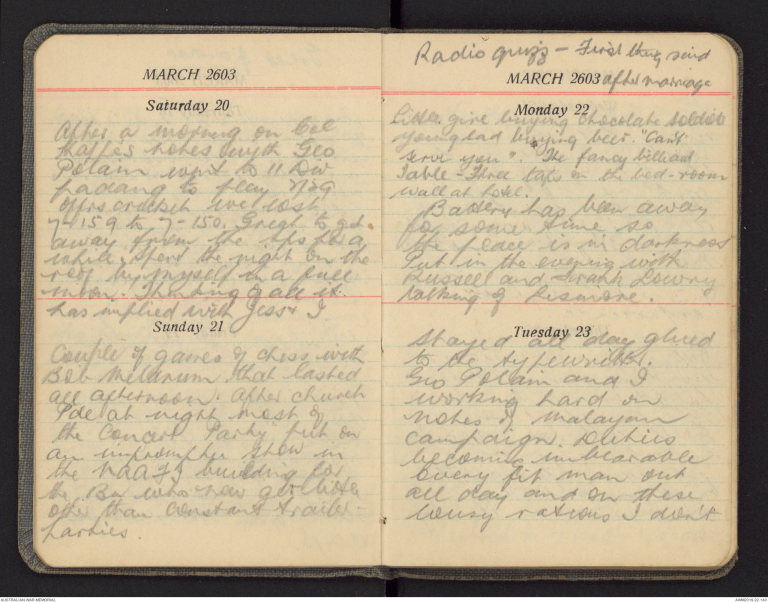 MARCH 2603
Saturday 20
After a morning on Col
Thaffes notes wyth Geo
Polain went to 11 Div
padang to play
offrs cricket we lost
7-159 to 7-150. Great to get
away from the for a
while. Spent the night on the
roof by myself in a full
moon. Thinking of all it
has implied with Jess & I
Sunday 21
Couple of games of chess with
Bob Meldrum that lasted
all afternoon. After church
Pde at night most of
the Concert Party put on
an impromptu show in
the NAAFI building for
the Bn who now get little
other than constant trailer
parties.
Radio quizz - First thing said
after marriage
MARCH 2603
Monday 22
Little girl buying chocolate soldier
young lad buying beer. "Can't
serve you". The fancy billiard
Table - Three taps in the bed-room
wall at hotel.
Badery has been away
for some time so
the place is in darkness
Put in the evening with
Russell and Frank Lowry
talking of Lismore.
Tuesday 23
Stayed all day glued
to the typewriter.
Geo Polain and I
working hard on
notes of Malayan
campaign. Duties
becoming unbearable
Every fit man out
all day and on these
lousy rations I don't
AUSTRALIAN WAR MEMORIAL